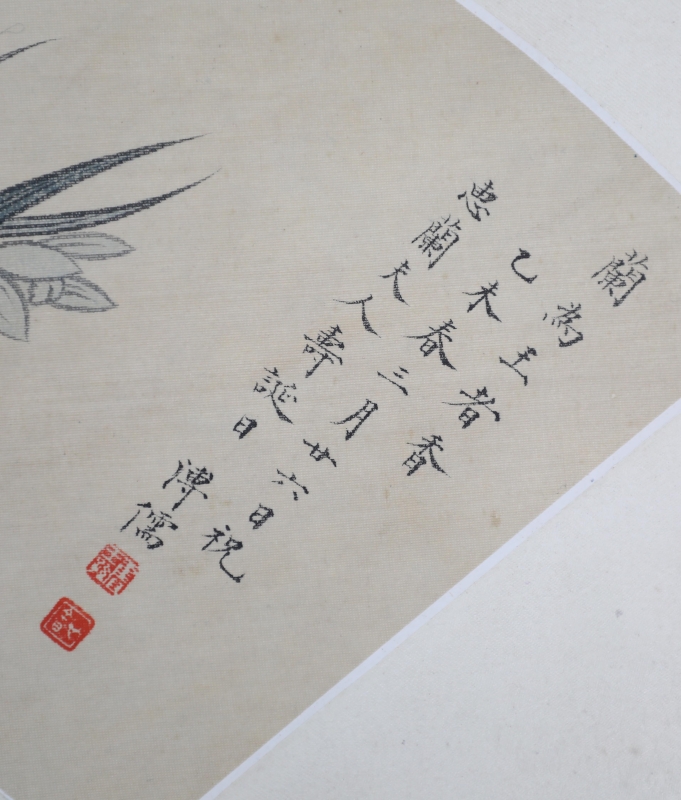 蘭為王者香
乙未春三月廿六日祝
惠蘭夫人壽誕日
溥儒